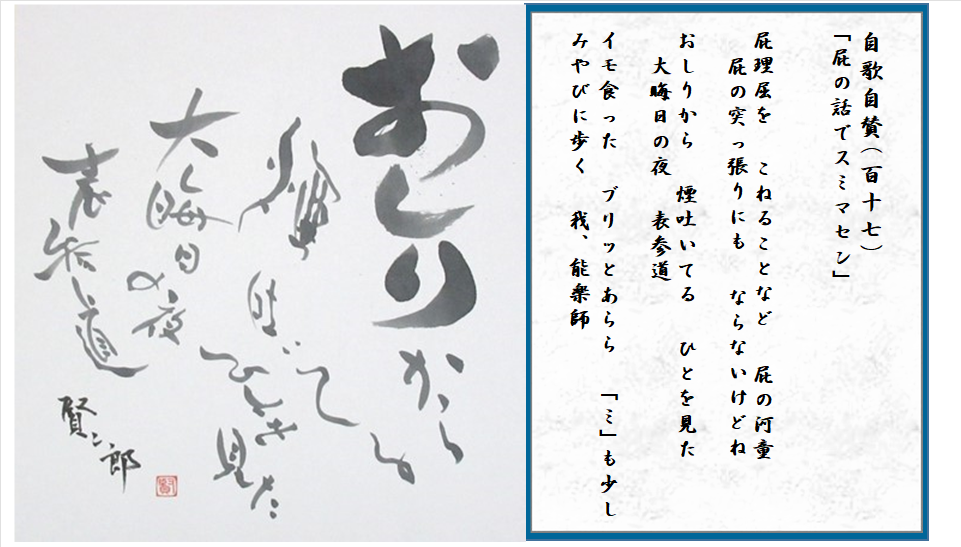 自歌自賛(百十七)
「屁の話でスミマセン」
屁理屈を こねることなど 屁の河童
屁の突っ張りにも ならないけどね
おしりから 煙吐いてる ひとを見た
大晦日の夜 表参道
イモ食った ブリッとあらら 「ミ」も少し
みやびに歩く 我、能楽師
おしりから
煙吐いてる
ひとを見た
大晦日の夜
表参道
賢一郎